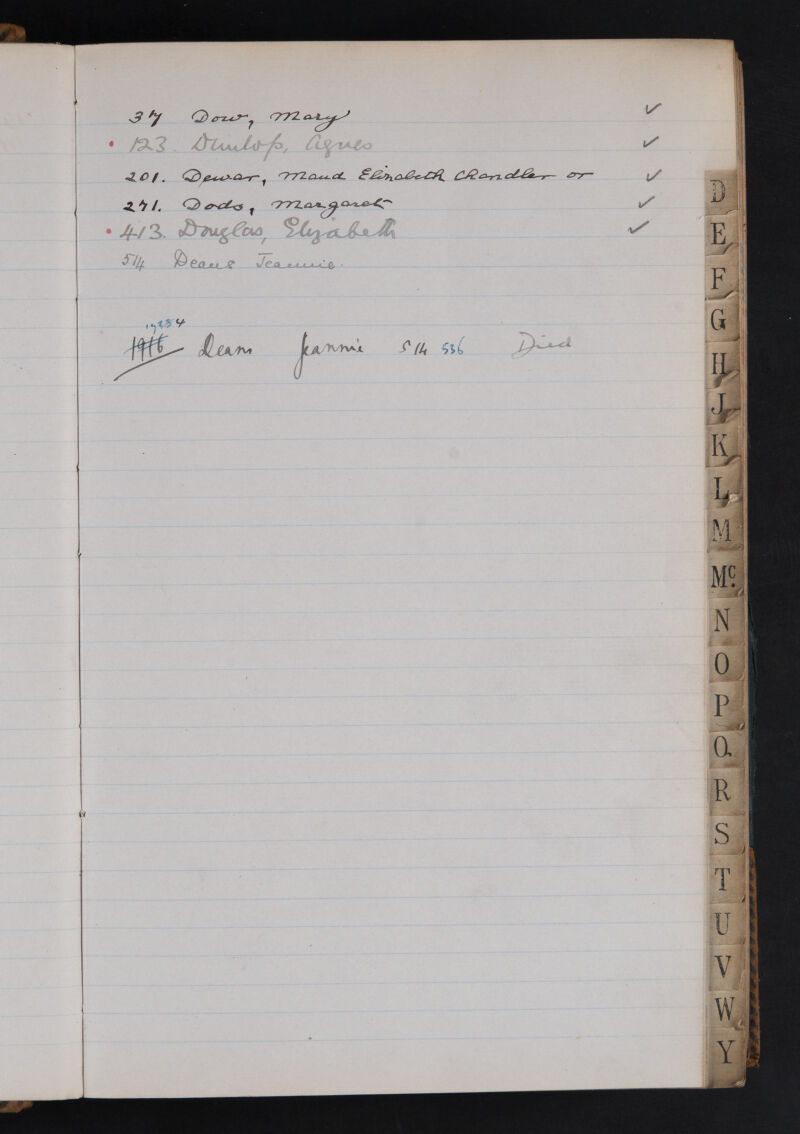 37 Dow, Mary ✓
• 123. Dunlop, Agnes ✓
201. Dewar, Maud Elizabeth Chandler or ✓
271. Dods, Margaret ✓
• 413. Douglas, Elizabeth ✓
514 Deans Jeannie.
1916 Deans Jeannie 514 536 Died
D
E
F
G
H
J
K
L
M
Mc.
N
O
P
Q.
R
S
T
U
V
W
Y